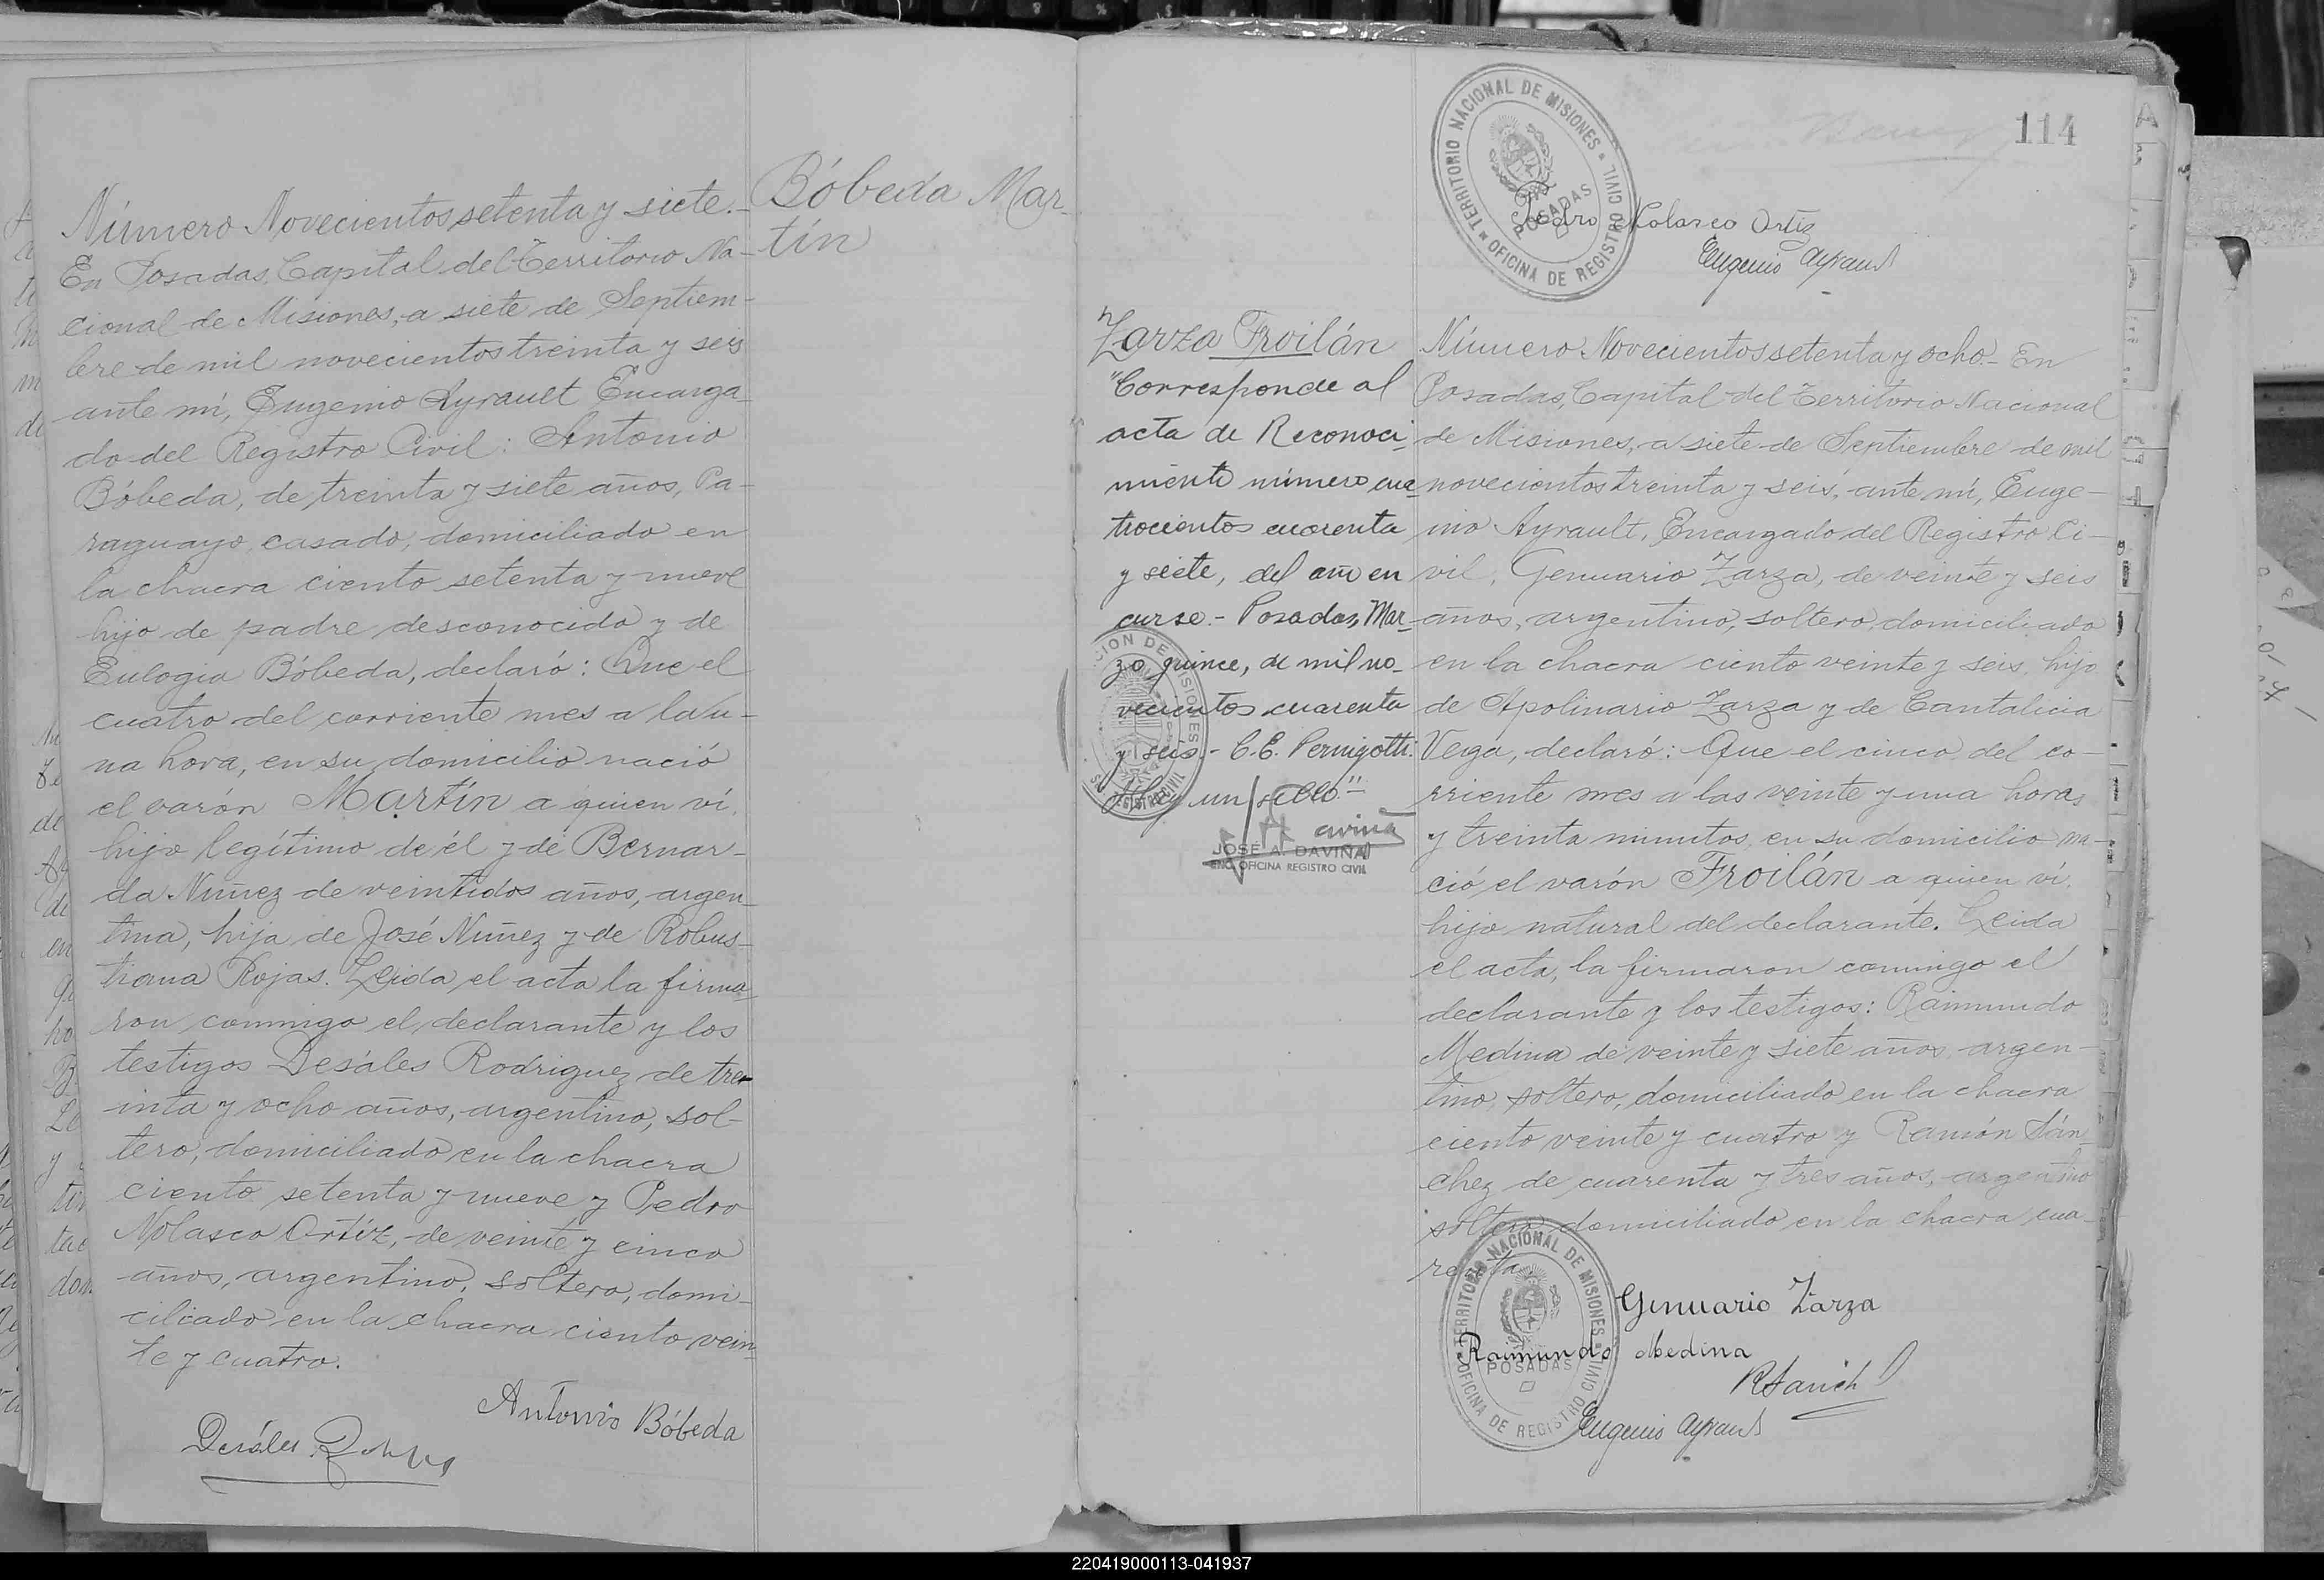 Número Novecientos setenta y siete.-
En Posadas, Capital del Territorio Na-
cional de Misiones, a siete de Septiem-
bre de mil novecientos treinta y seis
ante mí, Eugenio Ayrault Encarga-
do del Registro Civil: Antonio
Bóbeda, de treinta y siete años, Pa-
raguayo, casado, domiciliado en
la chacra ciento setenta y nueve
hijo de padre desconocido y de
Eulogia Bóbeda, declaró: Que el
cuatro del corriente mes a la u-
na hora, en su domicilio nació
el varón Martín a quien ví,
hijo legítimo de él y de Bernar-
da Nuñez de veintidos años, argen-
tina, hija de José Nuñez y de Robus-
tiana Rojas. Leida el acta la firma-
ron conmigo el declarante y los
testigos Desáles Rodriguez de tre
inta y ocho años, argentino, sol-
tero, domiciliado en la chacra
ciento setenta y nueve y Pedro
Nolasco Ortíz, de veinte y cinco
años, argentino, soltero, domi-
ciliado en la chacra ciento vein-
te y cuatro.
Antonio Bóbeda
Desáles
Bóbeda Mar-
tín
114
TERRITORIO NACIONAL DE MISIONES
OFICINA DE REGISTRO CIVIL
POSADAS
Pedro Nolasco Ortiz
Eugenio Ayrault
Zarza Froilán
"Corresponde al
acta de Reconoci-
miento número cua-
trocientos cuarenta
y siete, del año en
curso.- Posadas, Mar-
zo quince, de mil no-
vecientos cuarenta
y seis.- C.E. Pernigotti.
Hay un sello."
JOSÉ A. DAVIÑA
ENC. OFICINA REGISTRO CIVIL
Número Novecientos setenta y ocho.- En
Posadas, Capital del Territorio Nacional
de Misiones, a siete de Septiembre de mil
novecientos treinta y seis, ante mí, Euge-
nio Ayrault, Encargado del Registro Ci-
vil, Genuario Zarza, de veinte y seis
años, argentino, soltero, domiciliado
en la chacra ciento veinte y seis, hijo
de Apolinario Zarza y de Cantalicia
Vega, declaró: Que el cinco del co-
rriente mes a las veinte y una horas
y treinta minutos, en su domicilio na-
ció el varón Froilán a quien ví,
hijo natural del declarante. Leida
el acta, la firmaron conmigo el
declarante y los testigos: Raimundo
Medina de veinte y siete años, argen-
tino, soltero, domiciliado en la chacra
ciento veinte y cuatro y Ramón Sán-
chez de cuarenta y tres años, argentino
soltero, domiciliado en la chacra cua-
renta.
Genuario Zarza
Raimundo Medina
RSanch
Eugenio Ayrault
TERRITORIO NACIONAL DE MISIONES
OFICINA DE REGISTRO CIVIL
POSADAS
220419000113-041937